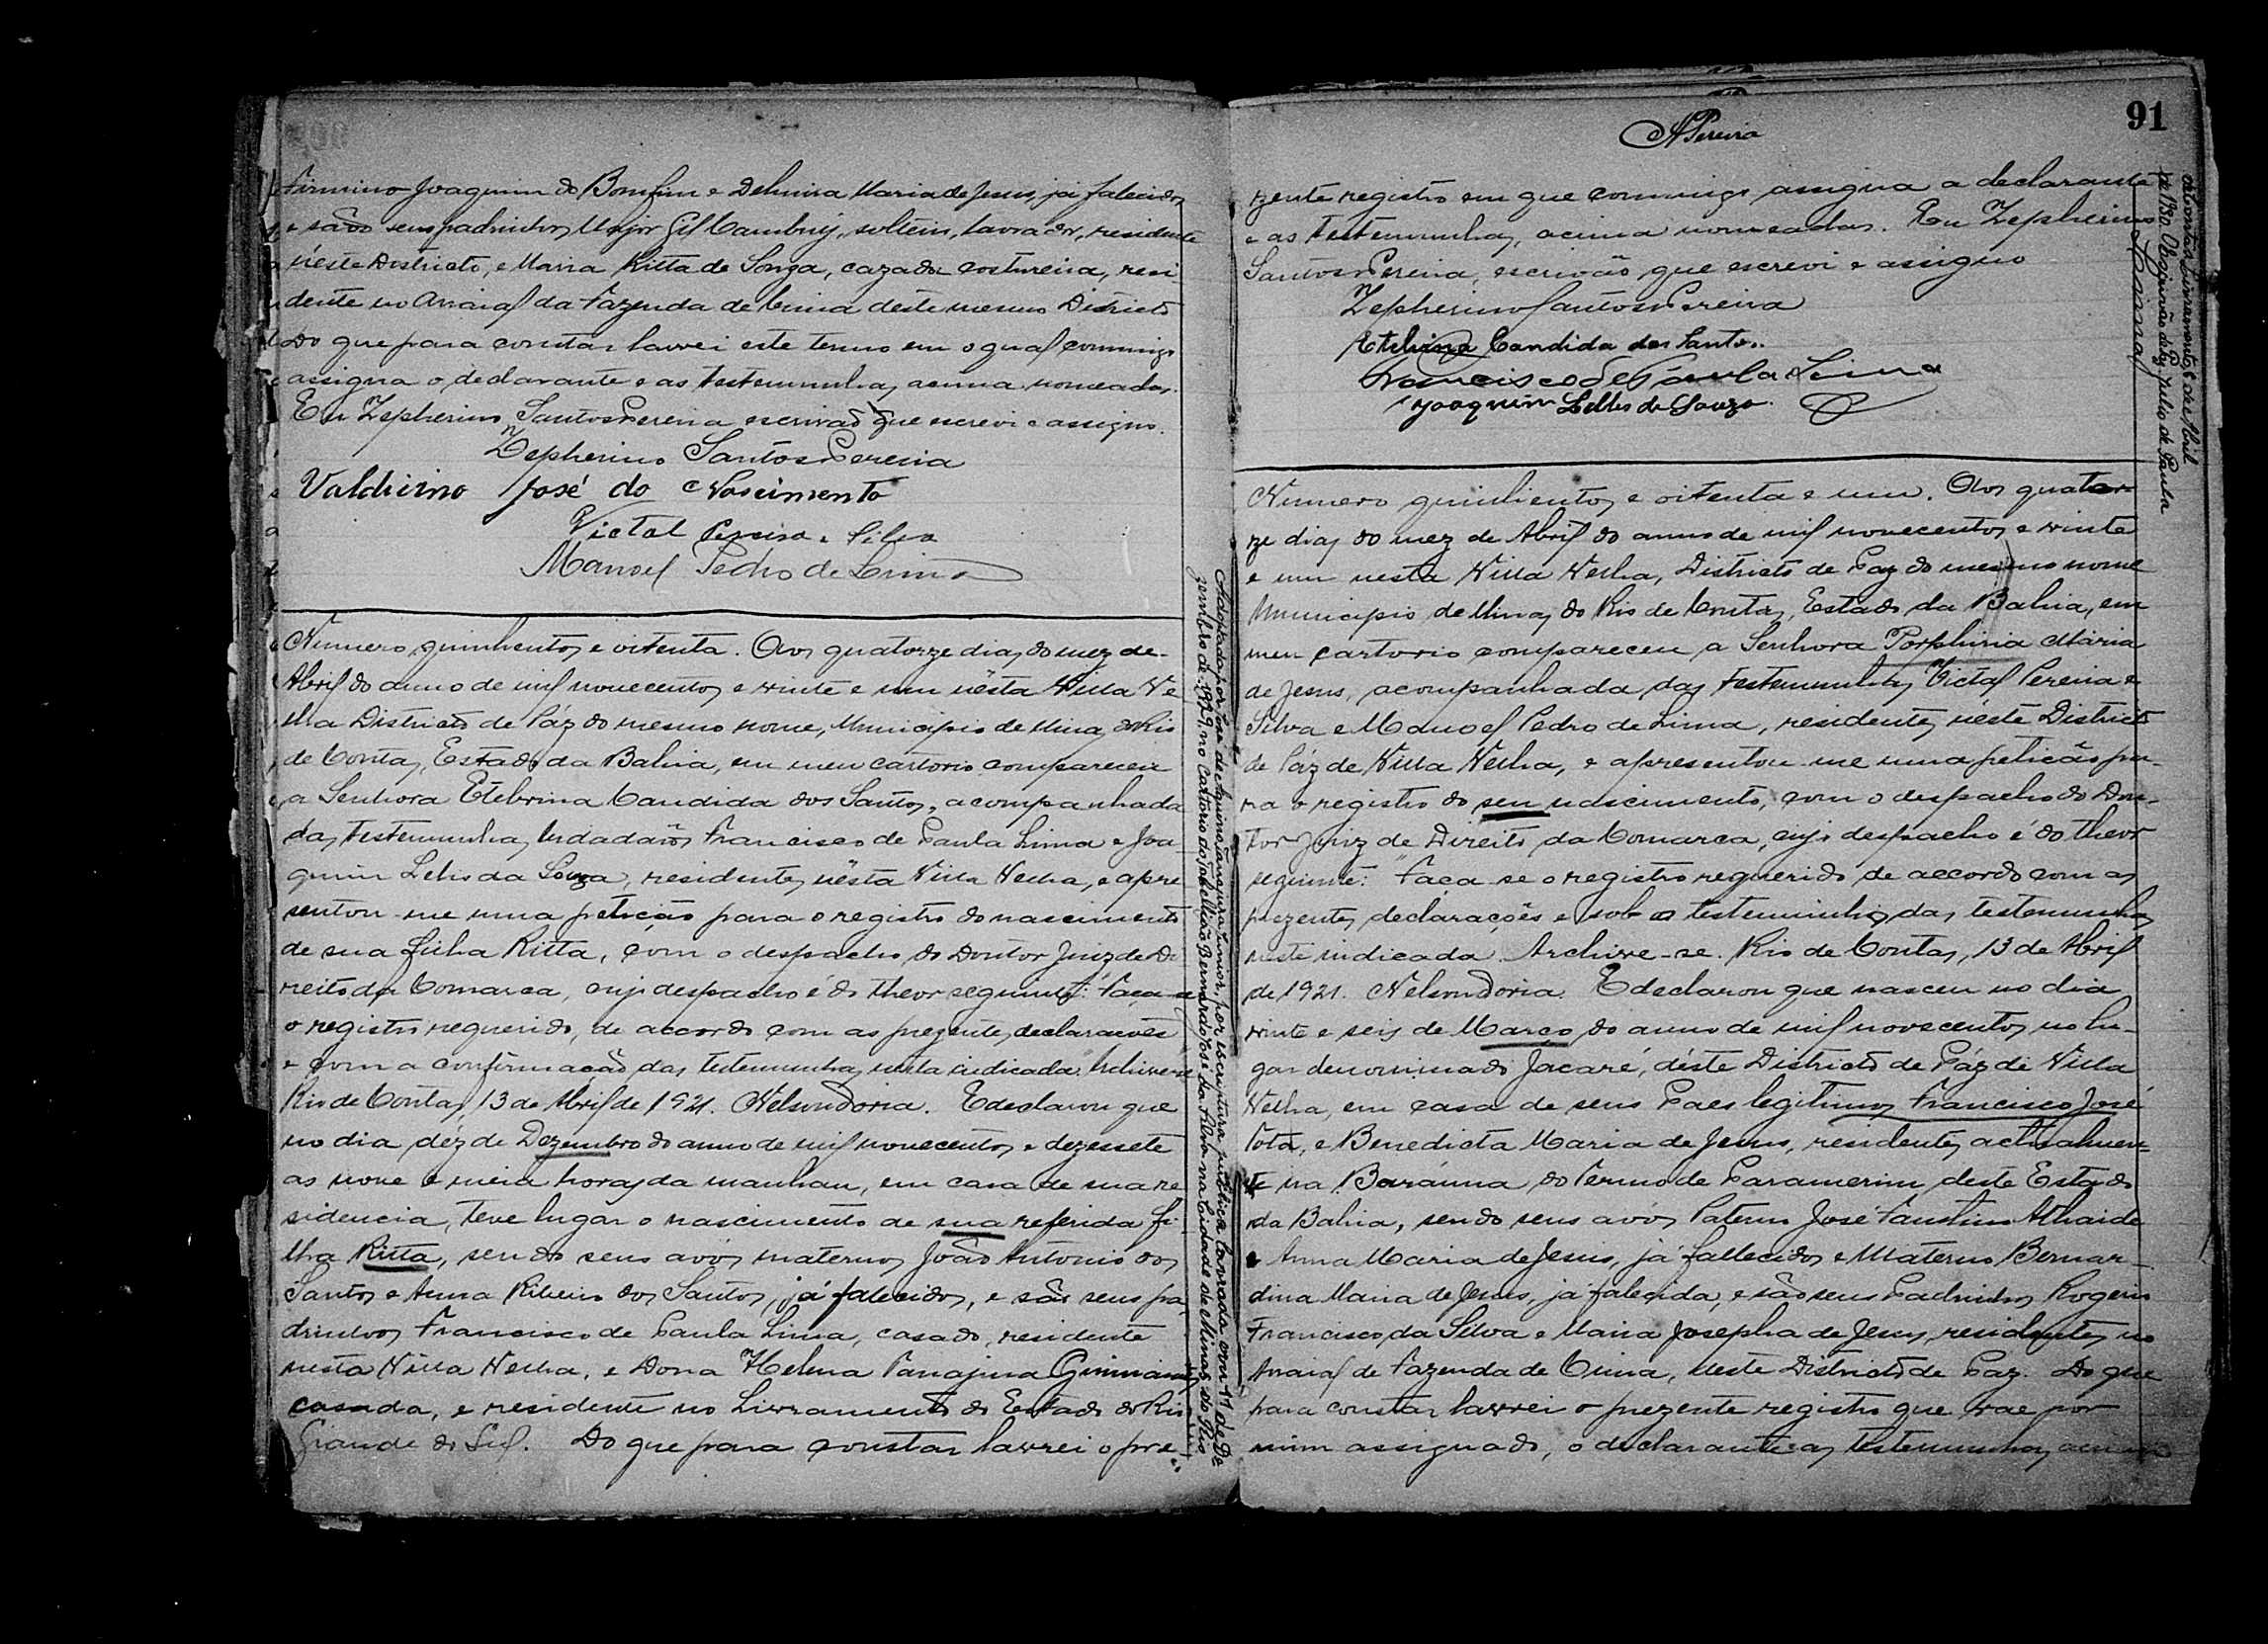 Firmino Joaquim do Bomfim e Delmira Maria de Jesus, já falecidos
e são seus padrinhos, Major Gil, solteiro, lavrador, residente
néste Districto, e Maria Ritta de Souza, cazada costureira, resi-
dente no Arraial da Fazenda de Cima deste mesmo Districto
Do que para constar lavrei este termo em o qual commigo
assigna o declarante e as testemunhas acima nomeadas.
Eu Zepherino Santos Pereira escrivão que escrevi e assigno.
Zepherino Santos Pereira
Valdivino José do Nascimento
Victal Pereira e Silva
Manoel Pedro de Lima
Numero quinhentos e oitenta. Aos quatorze dias do mez de
Abril do anno de mil novecentos e vinte e um nésta Villa Ve
lha Districto de Páz do mesmo nome, Municipio de Minas do Rio
de Contas, Estado da Bahia, em meu cartorio compareceu
a Senhora Etelvina Candida dos Santos, acompanhada
das testemunhas Cidadãos Francisco de Paula Lima e Joa
quim Lelis de Souza, residentes nésta Villa Velha, e apre
sentou-me uma petição para o registro do nascimento
de sua filha Ritta, com o despacho do Doutor Juiz de Di
reito da Comarca, cujo despacho é do theor seguinte: Faça-se
o registro requerido, de accordo com as prezentes declarações
e com a confirmação das testemunhas nesta indicada. Archive-se
Rio de Contas, 13 de Abril de 1921. Nelson Doria. E declarou que
no dia déz de Dezembro do anno de mil novecentos e dezessete
as nove e meia horas da manhan, em casa de sua re
sidencia, teve lugar o nascimento de sua referida fi
lha Ritta, sendo seus avós maternos João Antonio dos
Santos e Anna Ribeiro dos Santos, já falecidos, e são seus pa
drinhos Francisco de Paula Lima, casado, residente
nesta Villa Velha, e Dona Helena Tanajura Guimarães
casada, e residente no Livramento do Estado do Rio
Grande do Sul. Do que para constar lavrei o pre-
Adoptada por José de Aquino Tanajura Junior, por escriptura publica lavrada em 11 de De
zembro de 1929, no Cartorio do Tabellião Bernardo José da Silva na Cidade de Minas do Rio
de Contas. Livramento, de Abril
de 1930. O Escrivão de Paz Julio de Paula
APereira
91
zente registro em que commigo assigna a declarante
e as testemunhas, acima nomeadas. Eu Zepherino
Santos Pereira, escrivão que escrevi e assigno
Zepherino Santos Pereira
Etelvina Candida dos Santos
Francisco de Paula Lima
Joaquim Lelles de Souza.
Numero quinhentos e oitenta e um. Aos quator-
ze dias do mez de Abril do anno de mil novecentos e vinte
e um nesta Villa Velha, Districto de Paz do mesmo nome
Municipio de Minas do Rio de Contas, Estado da Bahia, em
meu cartorio compareceu a Senhora Porphiria Maria
de Jesus, acompanhada das testemunhas Victal Pereira e
Silva e Manoel Pedro de Lima, residentes néste Districto
de Páz de Villa Velha, e apresentou-me uma petição pa-
ra o registro do seu nascimento, com o despacho do Dou-
tor Juiz de Direito da Comarca, cujo despacho é do theor
seguinte: "Faça-se o registro requerido de accordo com as
prezentes declarações e sob o testemunho das testemunhas
neste indicada. Archive-se. Rio de Contas, 13 de Abril
de 1921. Nelson Doria. E declarou que nasceu no dia
vinte e seis de Março do anno de mil novecentos, no lu-
gar denominado Jacaré, déste Districto de Páz de Villa
Velha, em casa de seus Paes legitimos Francisco José
Tota, e Benedicta Maria de Jesus, residentes actualmen-
te na Baraúna do Termo de Paramerim deste Estado
da Bahia, sendo seus avós Paterno José Faustino Athaide
e Anna Maria de Jesus, já fallecidos e Materno Bernar-
dina Maria de Jesus, já falecida, e são seus Padrinhos Rogerio
Francisco da Silva e Maria Josepha de Jesus, residentes no
Arraial de Fazenda de Cima, deste Districto de Paz. Do que
para constar lavrei o prezente registro que vae por
mim assignado, o declarante e as testemunhas acima